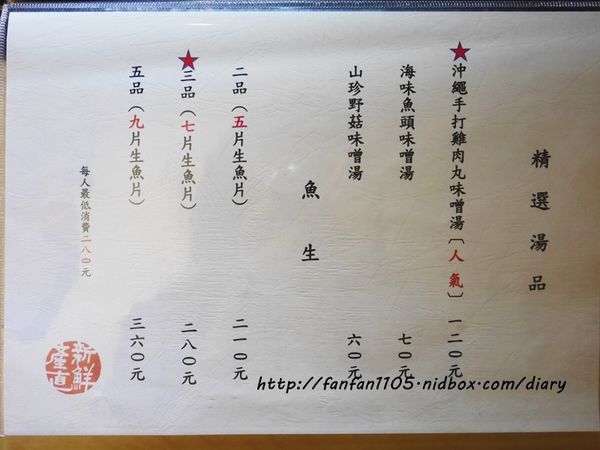 精選湯品
沖繩手打雞肉丸味噌湯〔人氣〕 一二〇元
海味魚頭味噌湯 七〇元
山珍野菇味噌湯 六〇元
魚生
二品（五片生魚片） 二一〇元
三品（七片生魚片） 二八〇元
五品（九片生魚片） 三六〇元
每人最低消費二八〇元
新鮮
產直
http://fanfan1105.nidbox.com/diary